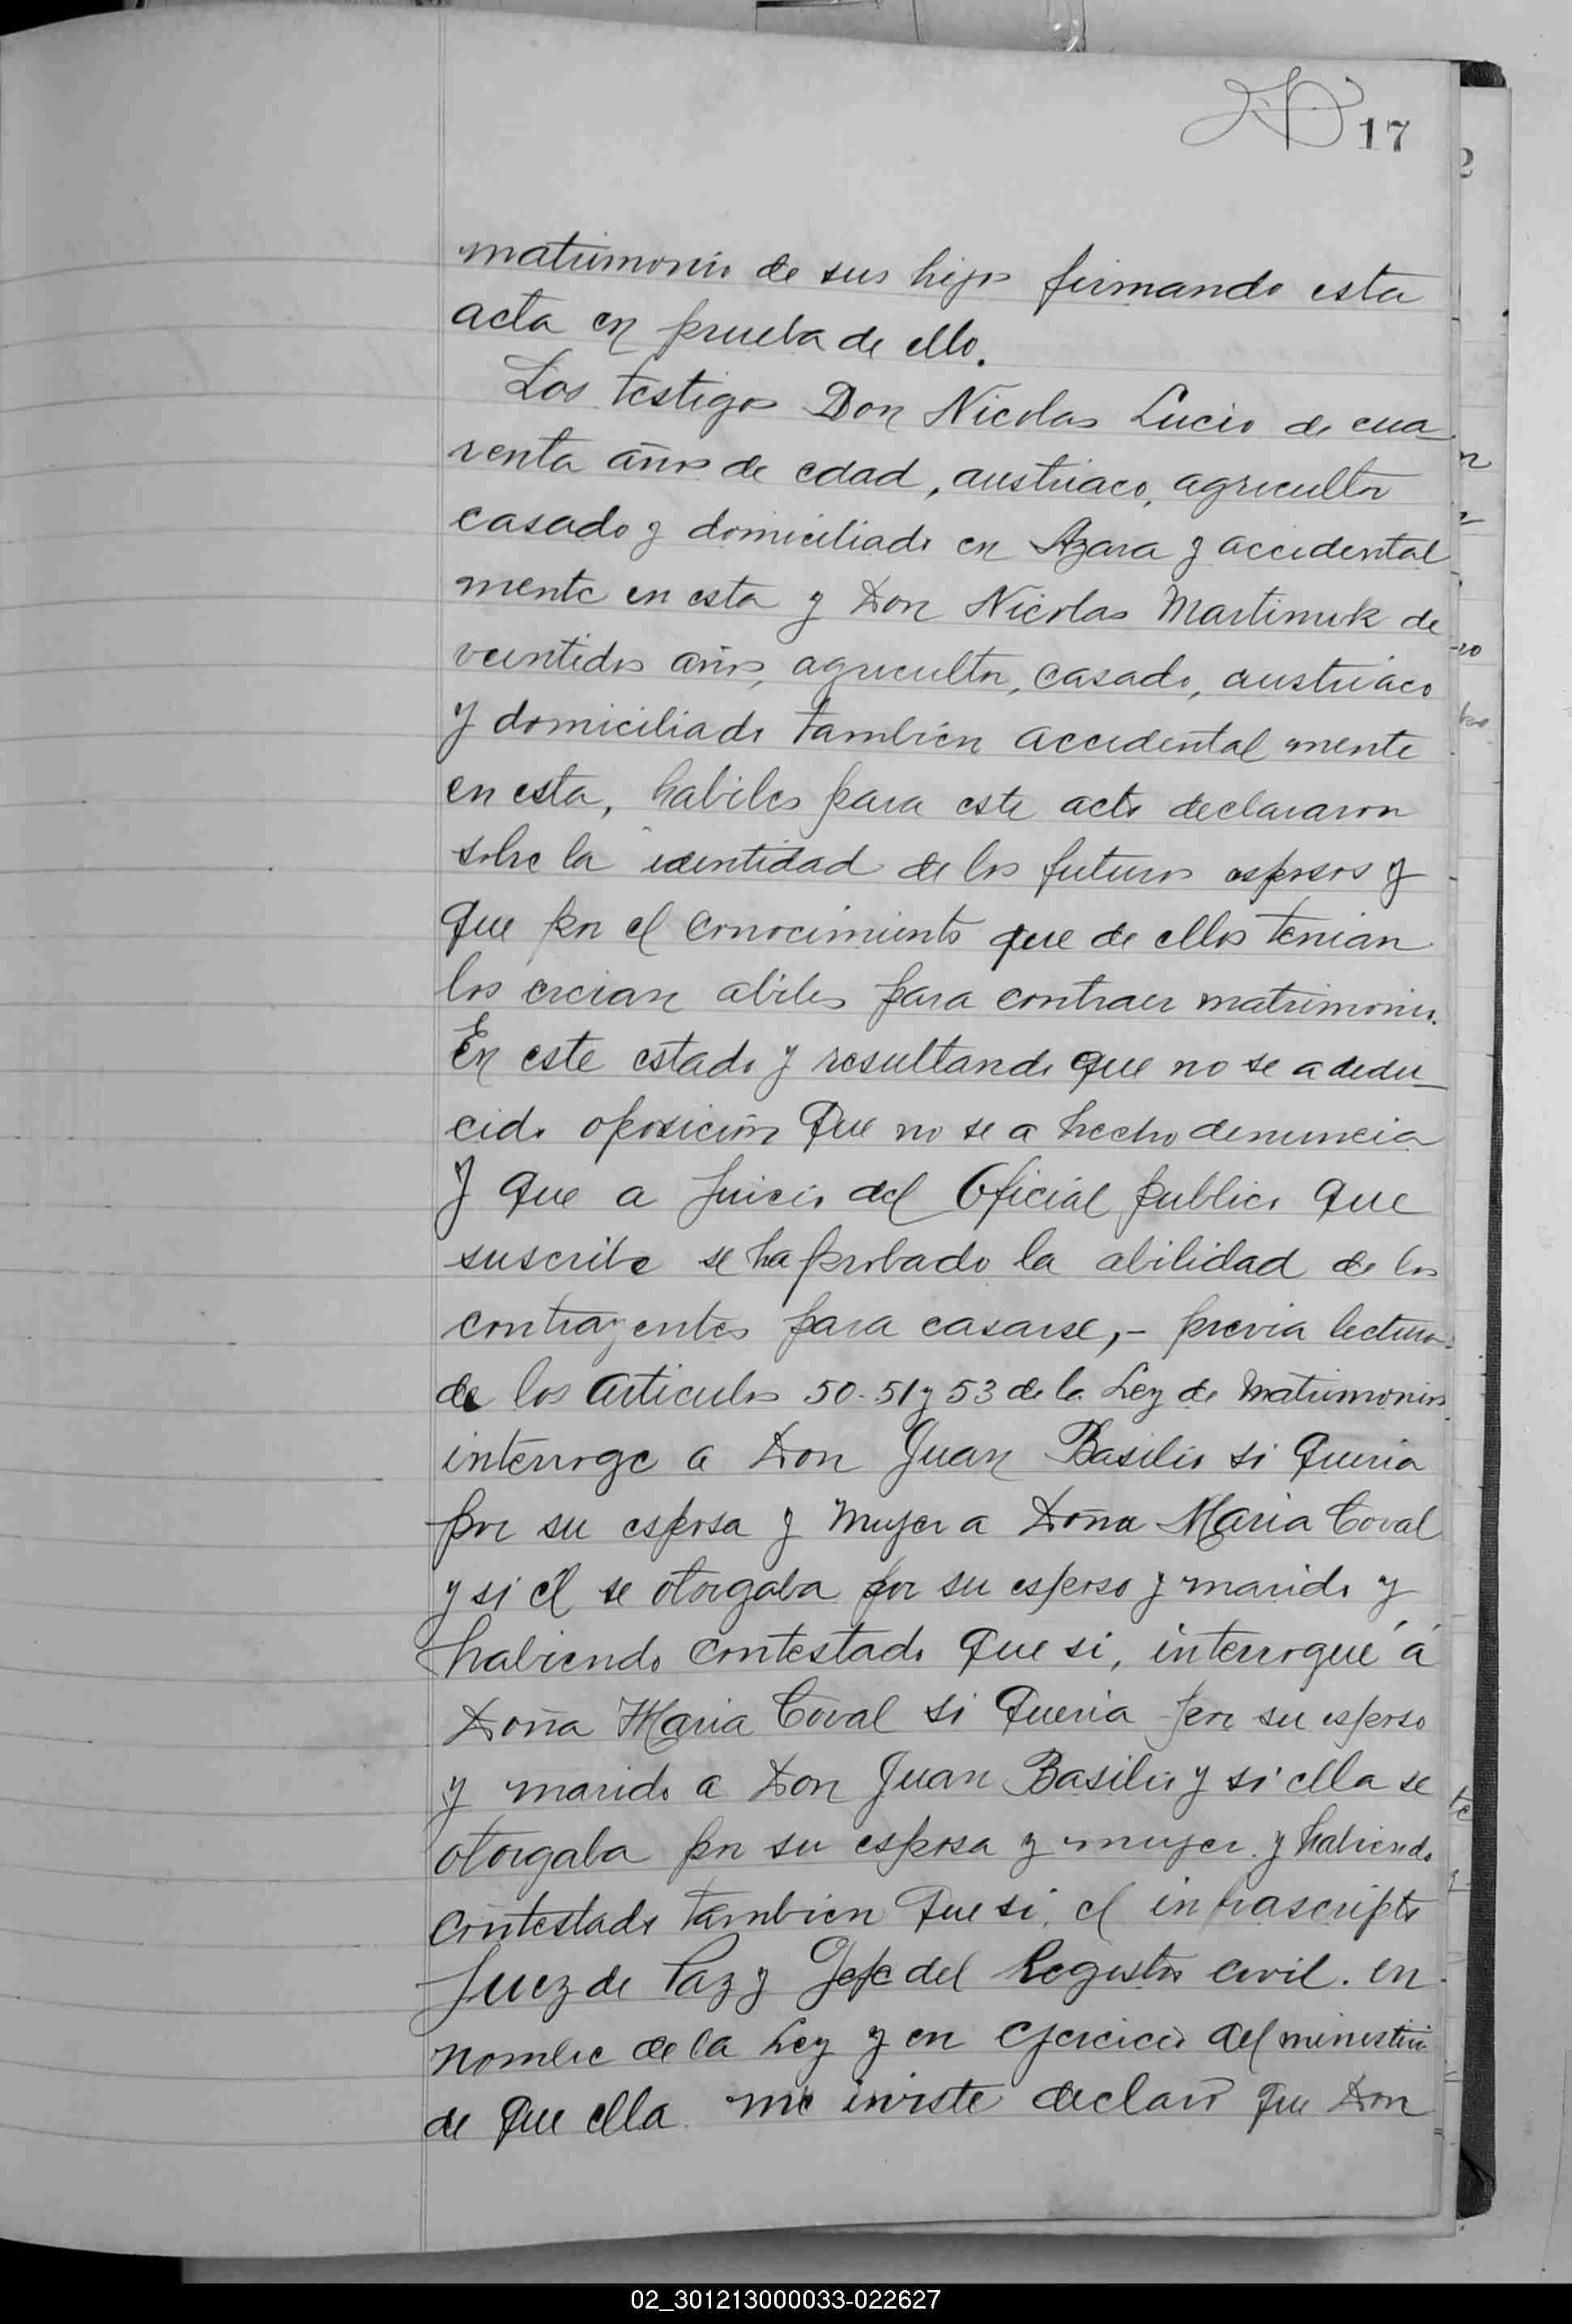 17
matrimonio de sus hijos firmando esta
acta en prueba de ello.
Los testigos Don Nicolas Lucio de cua-
renta años de edad, austriaco, agricultor
casado y domiciliado en Azara y accidental
mente en esta y Don Nicolas Martinuk de
veintidos años, agricultor, casado, austriaco
y domiciliado tambien accidental mente
en esta, habiles para este acto declararon
sobre la identidad de los futuros esposos y
que por el conocimiento que de ellos tenian
los creian abiles para contraer matrimonio.
En este estado y resultando que no se a dedu-
cido oposición que no se a hecho denuncia
y que a juicio del Oficial publico que
suscribe se ha probado la abilidad de los
contrayentes para casarse,- previa lectura
de los articulos 50-51 y 53 de la Ley de Matrimonios
interroge a Don Juan Basilio si queria
por su esposa y mujer a Doña Maria Coval
y si él se otorgaba por su esposo y marido y
habiendo contestado que si, interrogué á
Doña Maria Coval si queria por su esposo
y marido a Don Juan Basilio y si ella se
otorgaba por su esposa y mujer y habiendo
contestado tambien que si, el infrascripto
Juez de Paz y Jefe del Registro civil. en
nombre de la Ley y en ejercicio del ministerio
de que ella me inviste declaró que Don
02_301213000033-022627